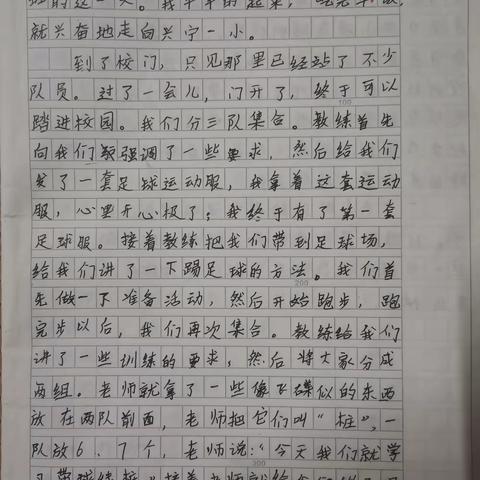 班的这一天。我早早的起来，吃完早饭，
就兴奋地走向兴宁一小。
到了校门，只见那里已经站了不少
队员。过了一会儿，门开了，终于可以
100
踏进校园。我们分三队集合。教练首先
向我们强调了一些要求，然后给我们
发了一套足球运动服，我拿着这套运动
服，心里开心极了；我终于有了第一套
足球服。接着教练把我们带到足球场，
给我们讲了一下踢足球的方法。我们首
200
先做一下准备活动，然后开始跑步，跑
完步以后，我们再次集合。教练给我们
讲了一些训练的要求，然后将大家分成
两组。老师就拿了一些像飞碟似的东西
放在两队前面，老师把它们叫“桩”，一
队放6、7个，老师说：“今天我们就学
300
习带球绕桩”接着老师就给